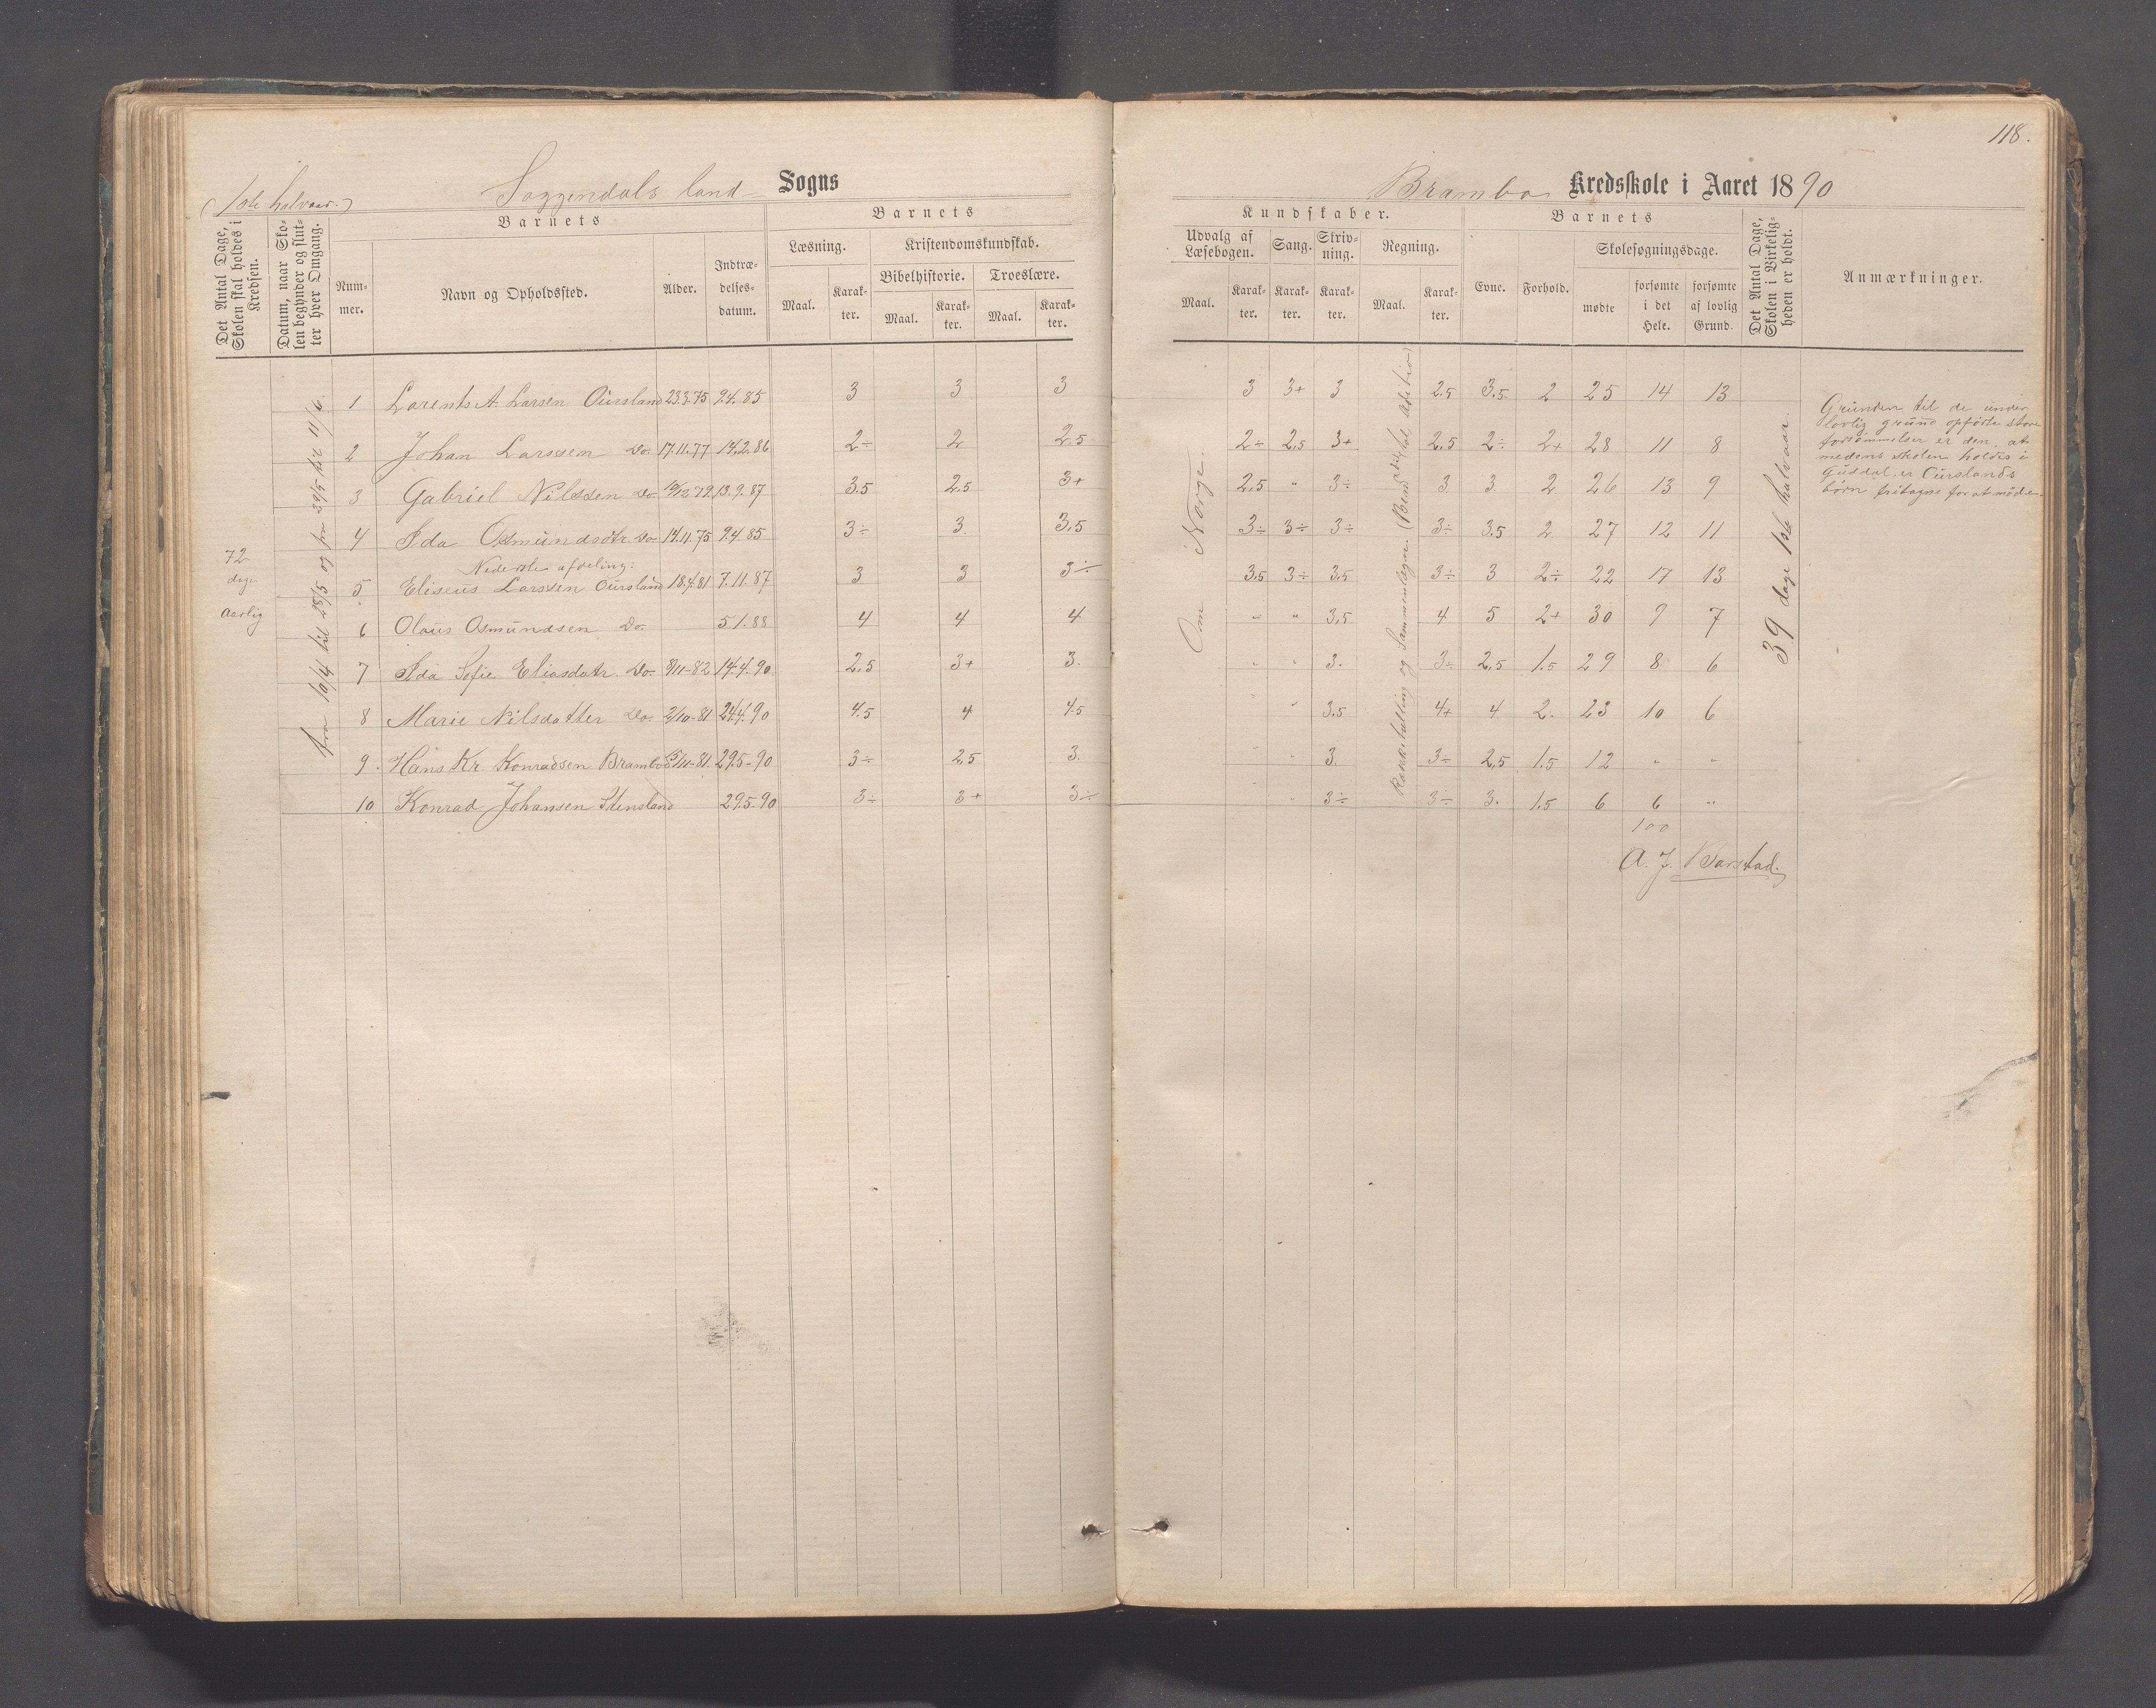 118.
(1ste halvaar.)
Soggendals land Sogns
Brambo Kredsskole i Aaret 1890
Det Antal Dage, Skolen skal holdes i Kredsen.
Datum, naar Skolen begynder og slutter hver Omgang.
Barnets
Nummer.
Navn og Opholdssted.
Alder.
Indtrædelsesdatum.
Barnets
Læsning.
Kristendomskundskab.
Bibelhistorie.
Troeslære.
Maal. Karakter. Maal. Karakter. Maal. Karakter.
Kundskaber.
Udvalg af Læsebogen.
Sang.
Skrivning.
Regning.
Maal. Karakter. Karakter. Karakter. Maal. Karakter.
Barnets
Evne.
Forhold.
Skolesøgningsdage.
mødte
forsømte i det Hele.
forsømte af lovlig Grund.
Det Antal Dage, Skolen i Virkeligheden er holdt.
Anmærkninger.
72 dage aarlig
fra 10/4 til 28/5 og fra 29/5 til 11/6.
Om Norge.
39 dage 1ste halvaar.
1 Lorents A. Larsen Oursland 23.3.75 9.4.85 3 3 3 3 3+ 3 2.5 3.5 2 25 14 13
2 Johan Larssen Do. 17.11.77 14.2.86 2÷ 2 2.5 2÷ 2.5 3+ 2.5 2÷ 2+ 28 11 8
3 Gabriel Nilssen Do 10/12 79 13.9.87 3.5 2.5 3+ 2.5 " 3÷ 3 3 2 26 13 9
4 Ida Osmundsdtr Do 14.11.75 9.4.85 3÷ 3 3.5 3÷ 3÷ 3÷ 3÷ 3.5 2 27 12 11
Nederste afdeling:
5 Eliseus Larssen Oursland 18.4.81 7.11.87 3 3 3÷ 3.5 3÷ 3.5 3÷ 3 2÷ 22 17 13
6 Olaus Osmundsen Do. 5.1.88 4 4 4 " " 3.5 4 5 2+ 30 9 7
7 Ida Sofie Eliasdatr. Do. 8/11-82 14.4.90 2.5 3+ 3. " " 3. 3÷ 2.5 1.5 29 8 6
8 Marie Nilsdatter Do. 2/10-81 24.4.90 4.5 4 4.5 " 3.5 4+ 4 2. 23 10 6
9. Hans Kr. Konradsen Brambo 5/11-81 29.5-90 3÷ 2.5 3. " " 3. 3÷ 2.5 1.5 12 " "
10 Konrad Johansen Stensland 29.5-90 3÷ 3+ 3÷ " 3÷ 3÷ 3. 1.5 6 6 "
100
A. J. Barstad.
Grunden til de under
lovlig grund opførte store
forsømmelser er den, at
medens skolen holdes i
Guddal, er Ourslands
børn fritagne for at møde.